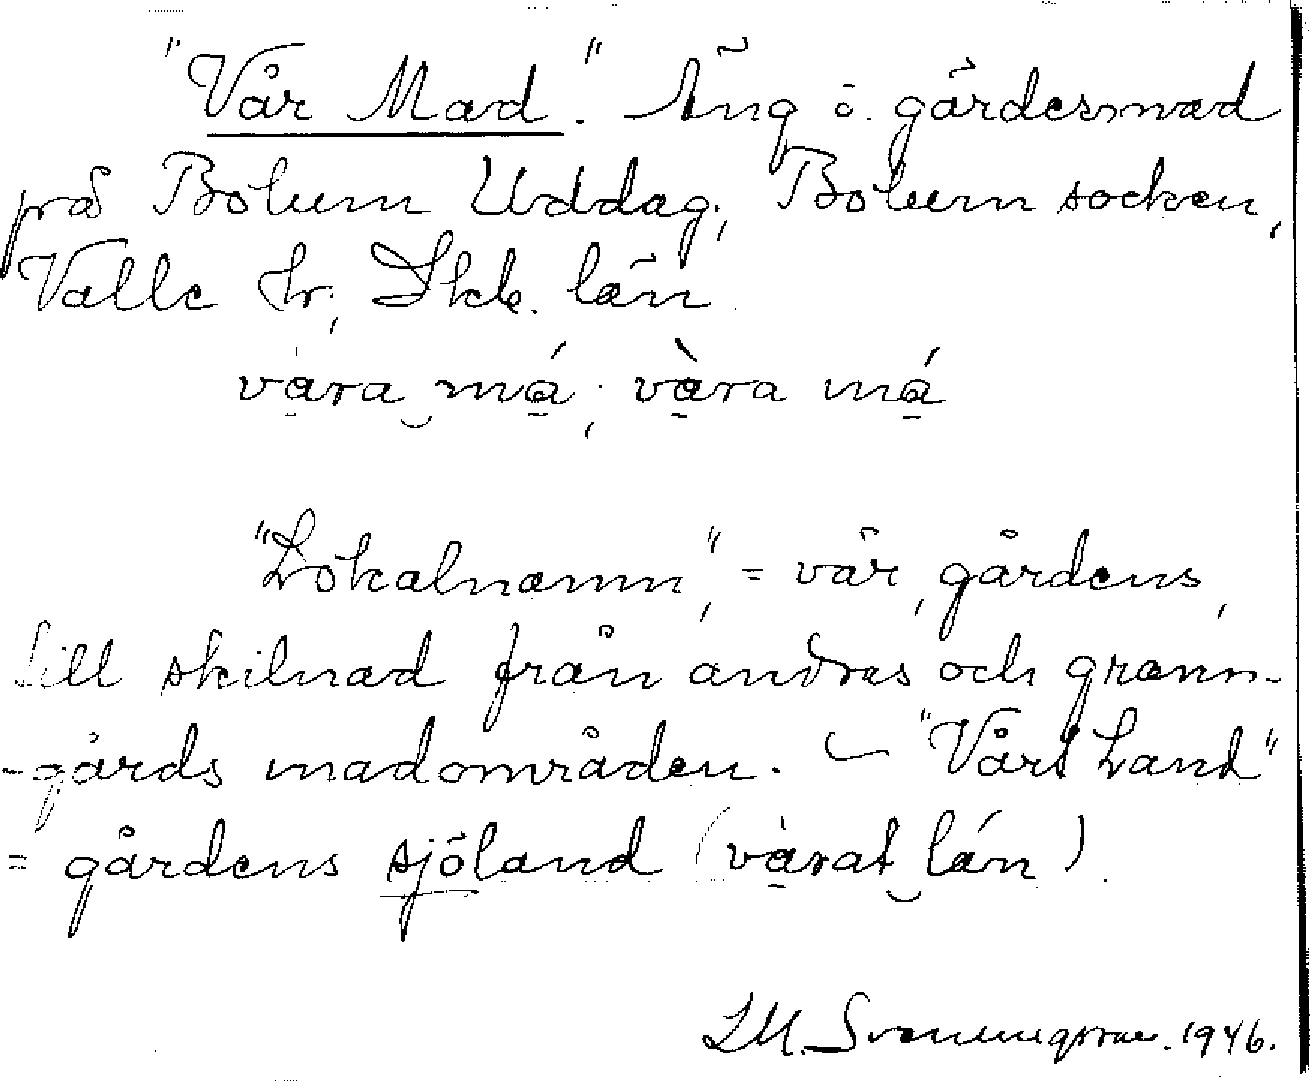 "Vår Mad". Äng o. gärdesmad
på Bolum Uddag., Bolum socken,
Valle hr., Skb. län.
vȧ̱ra‿má̱; và̱ra má̱
"Lokalnamn", = vår, gårdens,
till skilnad från andras och grann-
-gårds madområden. – "Vårt Land"
= gårdens sjöland (vȧ̱rat‿lán).
LM. Svenungsson. 1946.